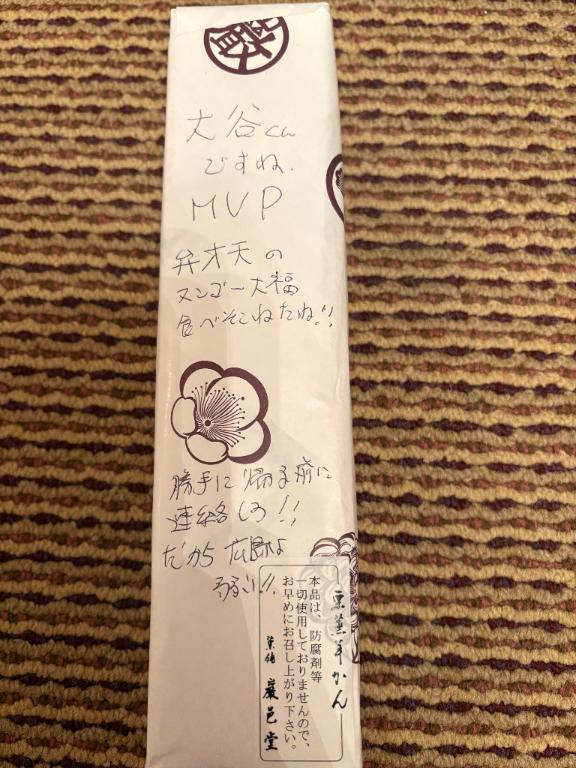 巌
大谷くん
ですね.
MVP
弁才天の
マンゴー大福
食べそこねたね!!
勝手に帰る前に
連絡しろ!!
だから広島は
弱い!!
栗蒸羊かん
本品は、防腐剤等
一切使用しておりませんので、
お早めにお召し上がり下さい。
菓舗 巌邑堂